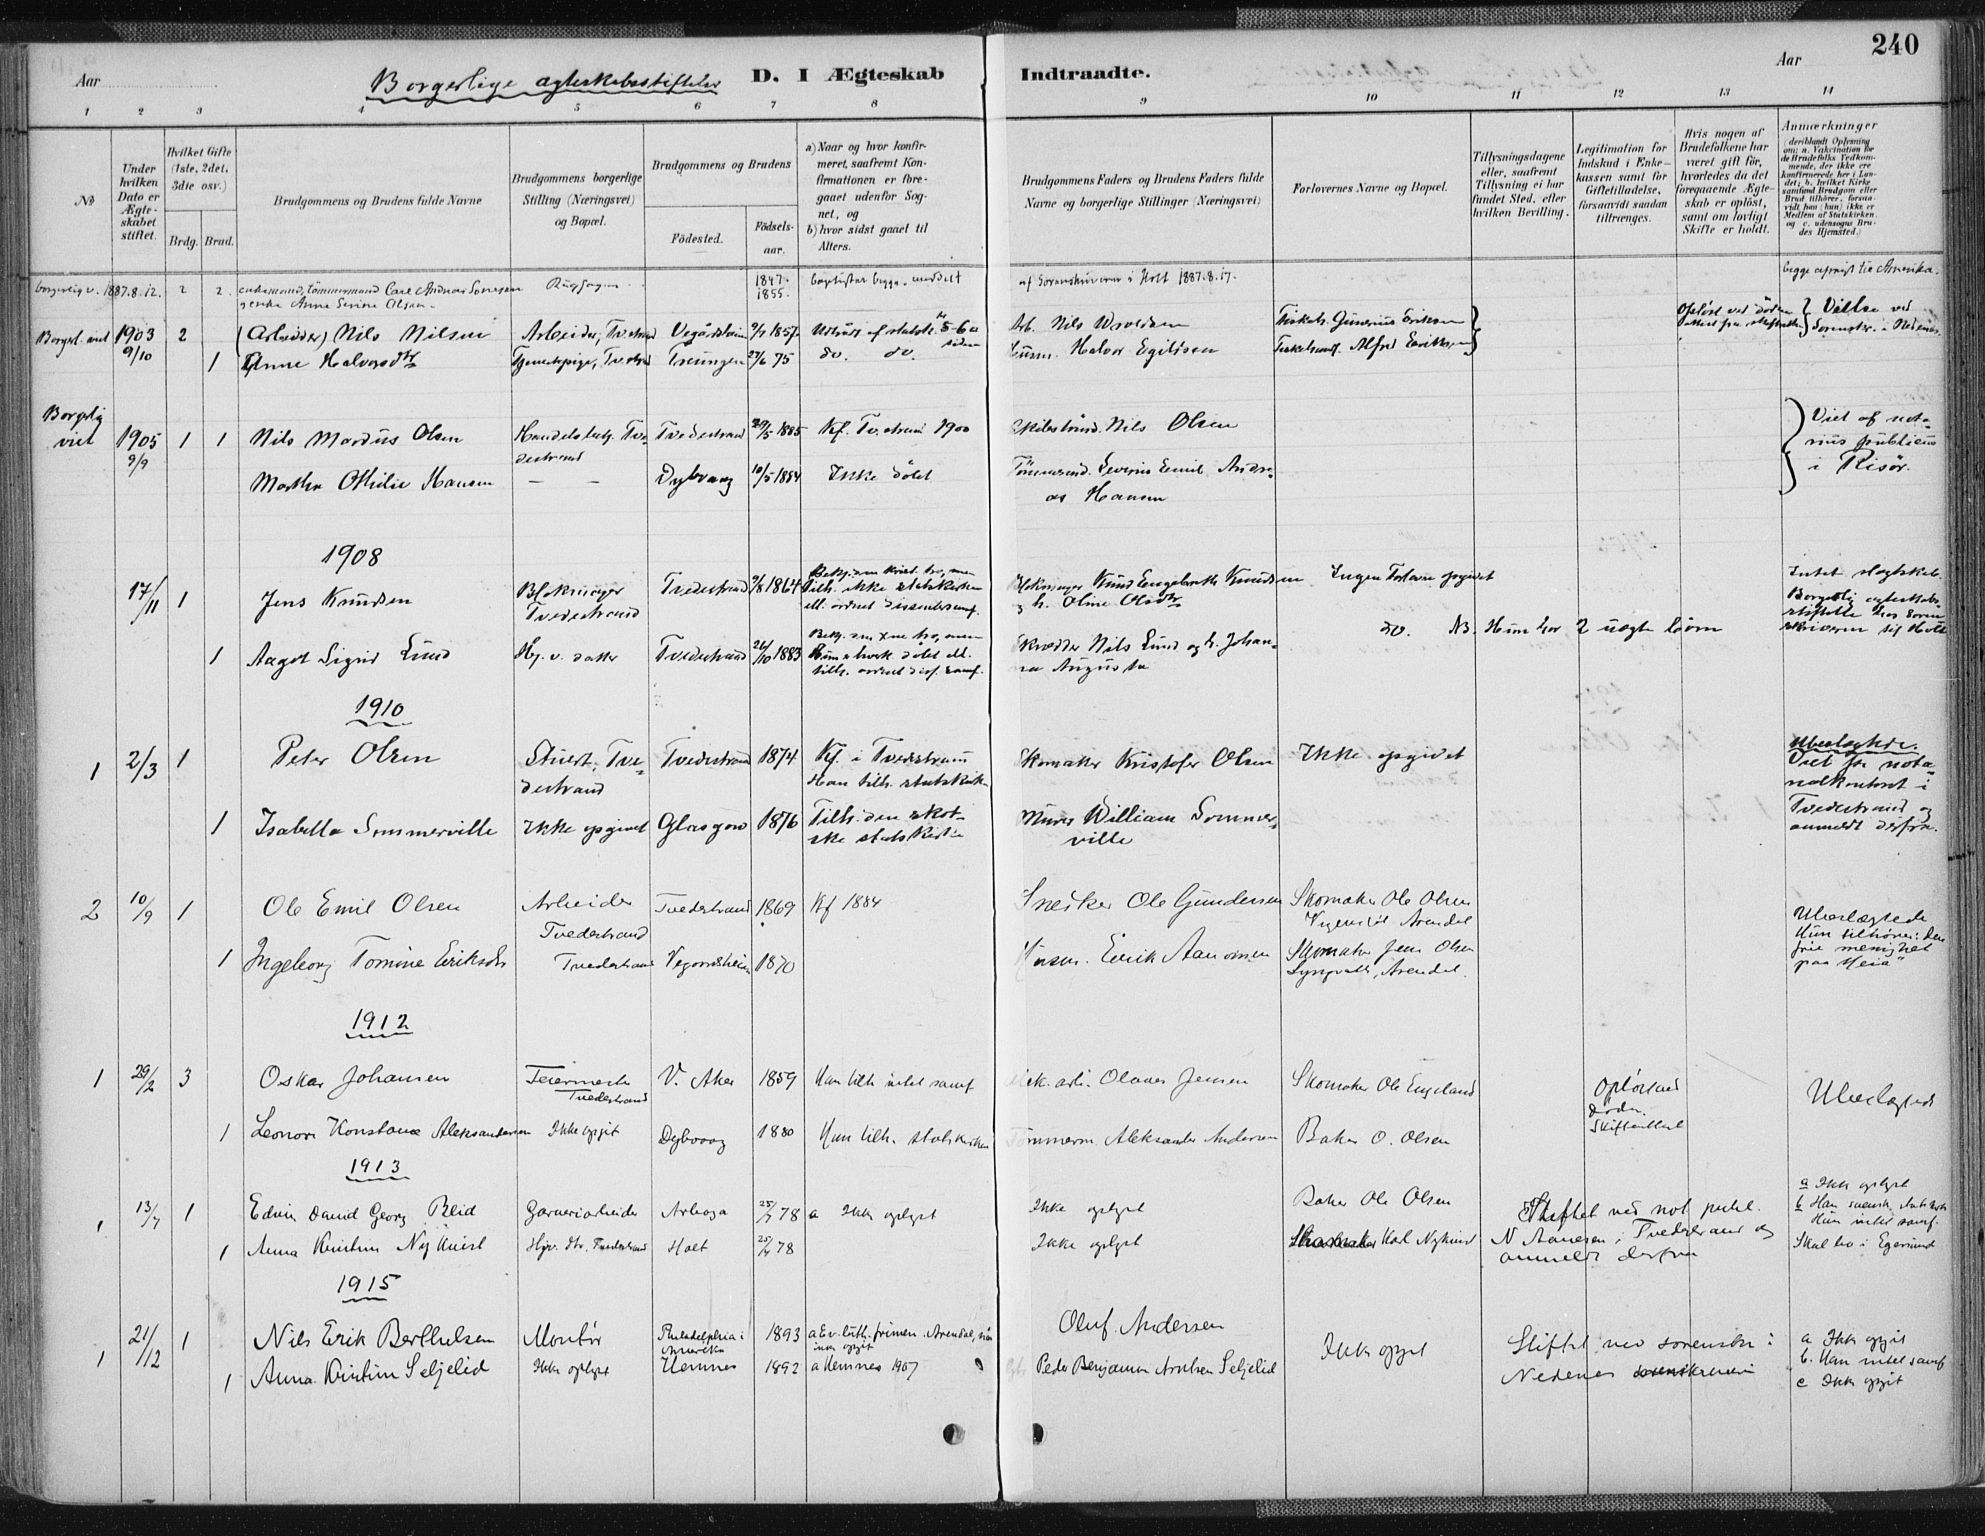 240
Aar
Borgerlige ægteskabsstiftelser D. I Ægteskab Indtraadte.
Aar
1 2 3 4 5 6 7 8 9 10 11 12 13 14
No
Under hvilken Dato er Ægteskabet stiftet.
Hvilket Gifte (1ste, 2det, 3die osv.)
Brdg. Brud.
Brudgommens og Brudens fulde Navne
Brudgommens borgerlige Stilling (Næringsvei) og Bopæl.
Brudgommens og Brudens
Fødested.
Fødselsaar.
a) Naar og hvor konfirmeret, saafremt Konfirmationen er foregaaet udenfor Sognet, og
b) hvor sidst gaaet til Alters.
Brudgommens Faders og Brudens Faders fulde Navne og borgerlige Stillinger (Næringsvei)
Forlovernes Navne og Bopæl.
Tillysningsdagene eller, saafremt Tillysning ei har fundet Sted, efter hvilken Bevilling.
Legitimation for Indskud i Enkekassen samt for Giftetilladelse, forsaavidt saadan tiltrænges.
Hvis nogen af Brudefolkene har været gift før, hvorledes da det foregaaende Ægteskab er opløst, samt om lovligt Skifte er holdt.
Anmærkninger (deriblandt Oplysning om: a. Vaccination for de Brudefolks Vedkommende, der ikke ere konfirmerede her i Landet; b. hvilket Kirkesamfund Brudgom eller Brud tilhører, forsaavidt han (hun) ikke er Medlem af Statskirken, og c. udensogns Brudes Hjemsted.)
borgerlig v. 1887.8.12. 2 2. enkemand, tømmermand Carl Andreas Sørensen 1847. baptister begge. meddelt af Sorenskriveren i Holt 1887.8.17. begge afreist til Amerika.
genke Anne Serine Olsen 1855.
Borgerl. viet 1903 2 (Arbeider) Nils Nilsen Arbeider, Tvestrand Vegårdshein 9/7 1857 Udtrådt af statsk. 5-6 a siden Arb. Nils Opløst ved døden Vielse ved
9/10 1 Anne Halvorsdtr Tjenestepige, Tvestrand Treungen 27/6 75 do. do. Husm. Halvor Egildsen Alfred Eriksen Sorenskr. i Nedenes
Borgerlig viet 1905 1 1 Nils Mardius Olsen Handelsbetj. Tvedestrand Tvedestrand 29/5 1885 Kf. Tvedestrand 1900 Skibstømd. Nils Olsen Viet af notarius publicus i Risør.
9/9 Martha Othilie Hansen — — Dybvaag 10/5 1884 Ikke døbt Tømmermd. Severin Emil Andreas Hansen
1908
17/11 1 Jens Knudsen Blokmager Tvedestrand Tvedestrand 9/8 1864 tilh. ikke statskirken ell. ordnet dissentersamf. Blokmager Knud Engebreth Knudsen og h. Oline Olsdtr Ingen Forlover opgivet Intet slegtskab. Borgerlig egteskabsstiftelse hos Sorenskriveren til Holt
1 Aagot Sigrid Lund Hj. v. datter Tvedestrand 26/10 1883 Skrædder Nils Lund og h. Johanna Augusta do. NB. Hun har 2 uægte børn
1910
1 2/3 1 Peter Olsen Stuert, Tvedestrand Tvedestrand 1874 Kf. i Tvedestrand Han tilh. statskirken Skomaker Kristofer Olsen Ikke opgivet Ubeslegtede. Viet for notarialkontoret i Tvedestrand og anmeldt derfra.
1 Isabella Sommerville Ikke opgivet Glasgow 1876 Tilh. den skotske statskirke Murer William Sommerville
2 10/9 1 Ole Emil Olsen Arbeider Tvedestrand Tvedestrand 1869 Kf 1884 Snedker Ole Gundersen Skomaker Ole Olsen Arendal Ubeslægtede Hun tilhører: "den frie menighet paa Heia"
1 Ingeborg Tomine Eriksdtr Tvedestrand Vegårdsheien 1870 Husm. Erik Aanonsen Skomaker Jens Olsen Arendal.
1912
1 29/2 3 Oskar Johansen Feiermester Tvedestrand V. Aker 1859 Han tilh. intet samf Olaves Jensen Skomaker Ole Engeland Opløst ved døden. Skifteattest Ubeslegtede
1 Leonore Konstanse Aleksandersen Ikke opgit Dybvaag 1880 Hun tilh. statskirken Tømmerm. Aleksander Andersen Baker O. Olsen
1913
1 13/7 1 Edvin David Georg Reid Garveriarbeider Arboga 25/7 78 a Ikke oplyst Ikke oplyst Baker Ole Olsen Stiftet ved not. publ. N Aanesen i Tvedestrand og anmeldt derfra a Ikke oplyst b Han svensk statskirke Hun intet samf. Skal bo i Egersund
1 Anna Kristine Nykvist Hjv. dtr. Tvedestrand Holt 25/4 78 Ikke oplyst Skomaker Karl Nykvist
1915
1 21/12 1 Nils Erik Berthelsen Montør Philadelphia i Amerika 1893 a Ev. luth. frimen. Arendal, Oluf Andersen Ikke opgit Stiftet ved sorenskr. i Nedenes a Ikke opgit b. Han intet samf c Ikke opgit
1 Anna Kristine Seljelid Ikke oplyst Hemnes 1892 a Hemnes 1907 Peder Benjamin Arntsen Seljelid